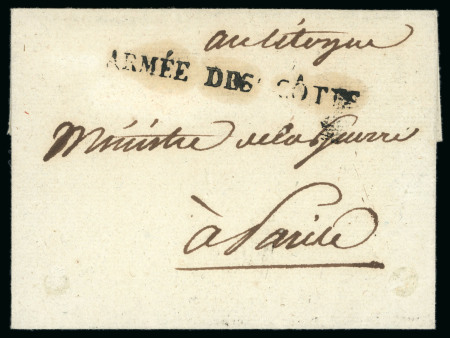 au Citoyen
ARMÉE DES CÔTES
Ministre de la Guerre
à Paris